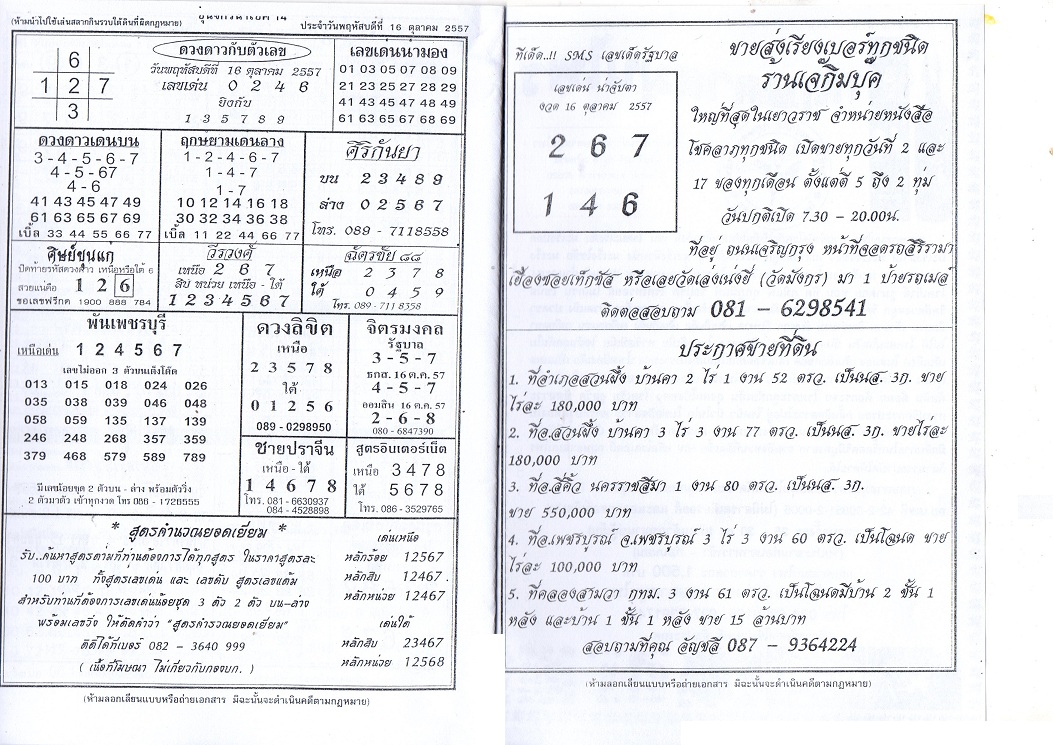 (ห้ามนำไปใช้เล่นสลากกินรวบใต้ดินที่ผิดกฎหมาย)
ประจำวันพฤหัสบดีที่ 16 ตุลาคม 2557
6
1 2 7
3
ดวงดาวกับตัวเลข
วันพฤหัสบดีที่ 16 ตุลาคม 2557
เลขเด่น 0 2 4 6
ยิงกับ
1 3 5 7 8 9
เลขเด่นน่ามอง
01 03 05 07 08 09
21 23 25 27 28 29
41 43 45 47 48 49
61 63 65 67 68 69
ดวงดาวเด่นบน
3-4-5-6-7
4-5-67
4-6
41 43 45 47 49
61 63 65 67 69
เบิ้ล 33 44 55 66 77
ฤกษ์ยามเด่นล่าง
1-2-4-6-7
1-4-7
1-7
10 12 14 16 18
30 32 34 36 38
เบิ้ล 11 22 44 66 77
ศิริกันยา
บน 2 3 4 8 9
ล่าง 0 2 5 6 7
โทร. 089 - 7118558
ศิษย์ขุนแก่
ปักท้ายรหัสดวงดาว เหนือหรือใต้ 6
สวยแน่คือ 1 2 6
ขอเลขฟรีกด 1900 888 784
วีรวงศ์
เหนือ 2 6 7
สิบ หน่วย เหนือ - ใต้
1 2 3 4 5 6 7
ฉัตรชัย ๘๘
เหนือ 2 3 7 8
ใต้ 0 4 5 9
โทร. 089 - 711 8358
พันเพชรบุรี
เหนือเด่น 1 2 4 5 6 7
เลขไม่ออก 3 ตัวบนเต็งโต๊ด
013 015 018 024 026
035 038 039 046 048
058 059 135 137 139
246 248 268 357 359
379 468 579 589 789
มีเลขน้อยชุด 2 ตัวบน - ล่าง พร้อมตัววิ่ง
2 ตัวมาตัว เข้าทุกงวด โทร 086 - 1728555
ดวงลิขิต
เหนือ
2 3 5 7 8
ใต้
0 1 2 5 6
089 - 0298950
จิตรมงคล
รัฐบาล
3 - 5 - 7
ธกส. 16 ต.ค. 57
4 - 5 - 7
ออมสิน 16 ต.ค. 57
2 - 6 - 8
080 - 6847390
ชายปราจีน
เหนือ - ใต้
1 4 6 7 8
โทร. 081 - 6630937
084 - 4528898
สูตรอินเตอร์เน็ต
เหนือ 3 4 7 8
ใต้ 5 6 7 8
โทร. 086 - 3529765
* สูตรคำนวณยอดเยี่ยม *
รับ..ค้นหาสูตรตามที่ท่านต้องการได้ทุกสูตร ในราคาสูตรละ
100 บาท ทั้งสูตรเลขเด่น และ เลขดับ สูตรเลขแต้ม
สำหรับท่านที่ต้องการเลขเด่นน้อยชุด 3 ตัว 2 ตัว บน-ล่าง
พร้อมเลขวิ่ง ให้ติดคำว่า "สูตรคำรวณยอดเยี่ยม"
ติดได้ที่เบอร์ 082 - 3640 999
( เนื้อที่โฆษณา ไม่เกี่ยวกับกองบก. )
เด่นเหนือ
หลักร้อย 12567
หลักสิบ 12467
หลักหน่วย 12467
เด่นใต้
หลักสิบ 23467
หลักหน่วย 12568
(ห้ามลอกเลียนแบบหรือถ่ายเอกสาร มิฉะนั้นจะดำเนินคดีตามกฎหมาย)
ทีเด็ด..!! SMS เลขเด็ดรัฐบาล
เลขเด่น น่าจับตา
งวด 16 ตุลาคม 2557
2 6 7
1 4 6
ขายส่งเรียงเบอร์ทุกชนิด
ร้านเจ๊กิมบุ๊ค
ใหญ่ที่สุดในเยาวราช จำหน่ายหนังสือ
โชคลาภทุกชนิด เปิดขายทุกวันที่ 2 และ
17 ของทุกเดือน ตั้งแต่ตี 5 ถึง 2 ทุ่ม
วันปกติเปิด 7.30 - 20.00น.
ที่อยู่ ถนนเจริญกรุง หน้าที่จอดรถสิริรามา
เยื้องซอยเท็กซัส หรือเลยวัดเล่งเน่งยี่ (วัดมังกร) มา 1 ป้ายรถเมล์
ติดต่อสอบถาม 081 - 6298541
ประกาศขายที่ดิน
1. ที่อำเภอสวนผึ้ง บ้านคา 2 ไร่ 1 งาน 52 ตรว. เป็นนส. 3ก. ขาย
ไร่ละ 180,000 บาท
2. ที่อ.สวนผึ้ง บ้านคา 3 ไร่ 3 งาน 77 ตรว. เป็นนส. 3ก. ขายไร่ละ
180,000 บาท
3. ที่อ.สี่คิ้ว นครราชสีมา 1 งาน 80 ตรว. เป็นนส. 3ก.
ขาย 550,000 บาท
4. ที่อ.เพชรบูรณ์ จ.เพชรบูรณ์ 3 ไร่ 3 งาน 60 ตรว. เป็นโฉนด ขาย
ไร่ละ 100,000 บาท
5. ที่คลองสามวา กทม. 3 งาน 61 ตรว. เป็นโฉนดมีบ้าน 2 ชั้น 1
หลัง และบ้าน 1 ชั้น 1 หลัง ขาย 15 ล้านบาท
สอบถามที่คุณ อัญชลี 087 - 9364224
(ห้ามลอกเลียนแบบหรือถ่ายเอกสาร มิฉะนั้นจะดำเนินคดีตามกฎหมาย)